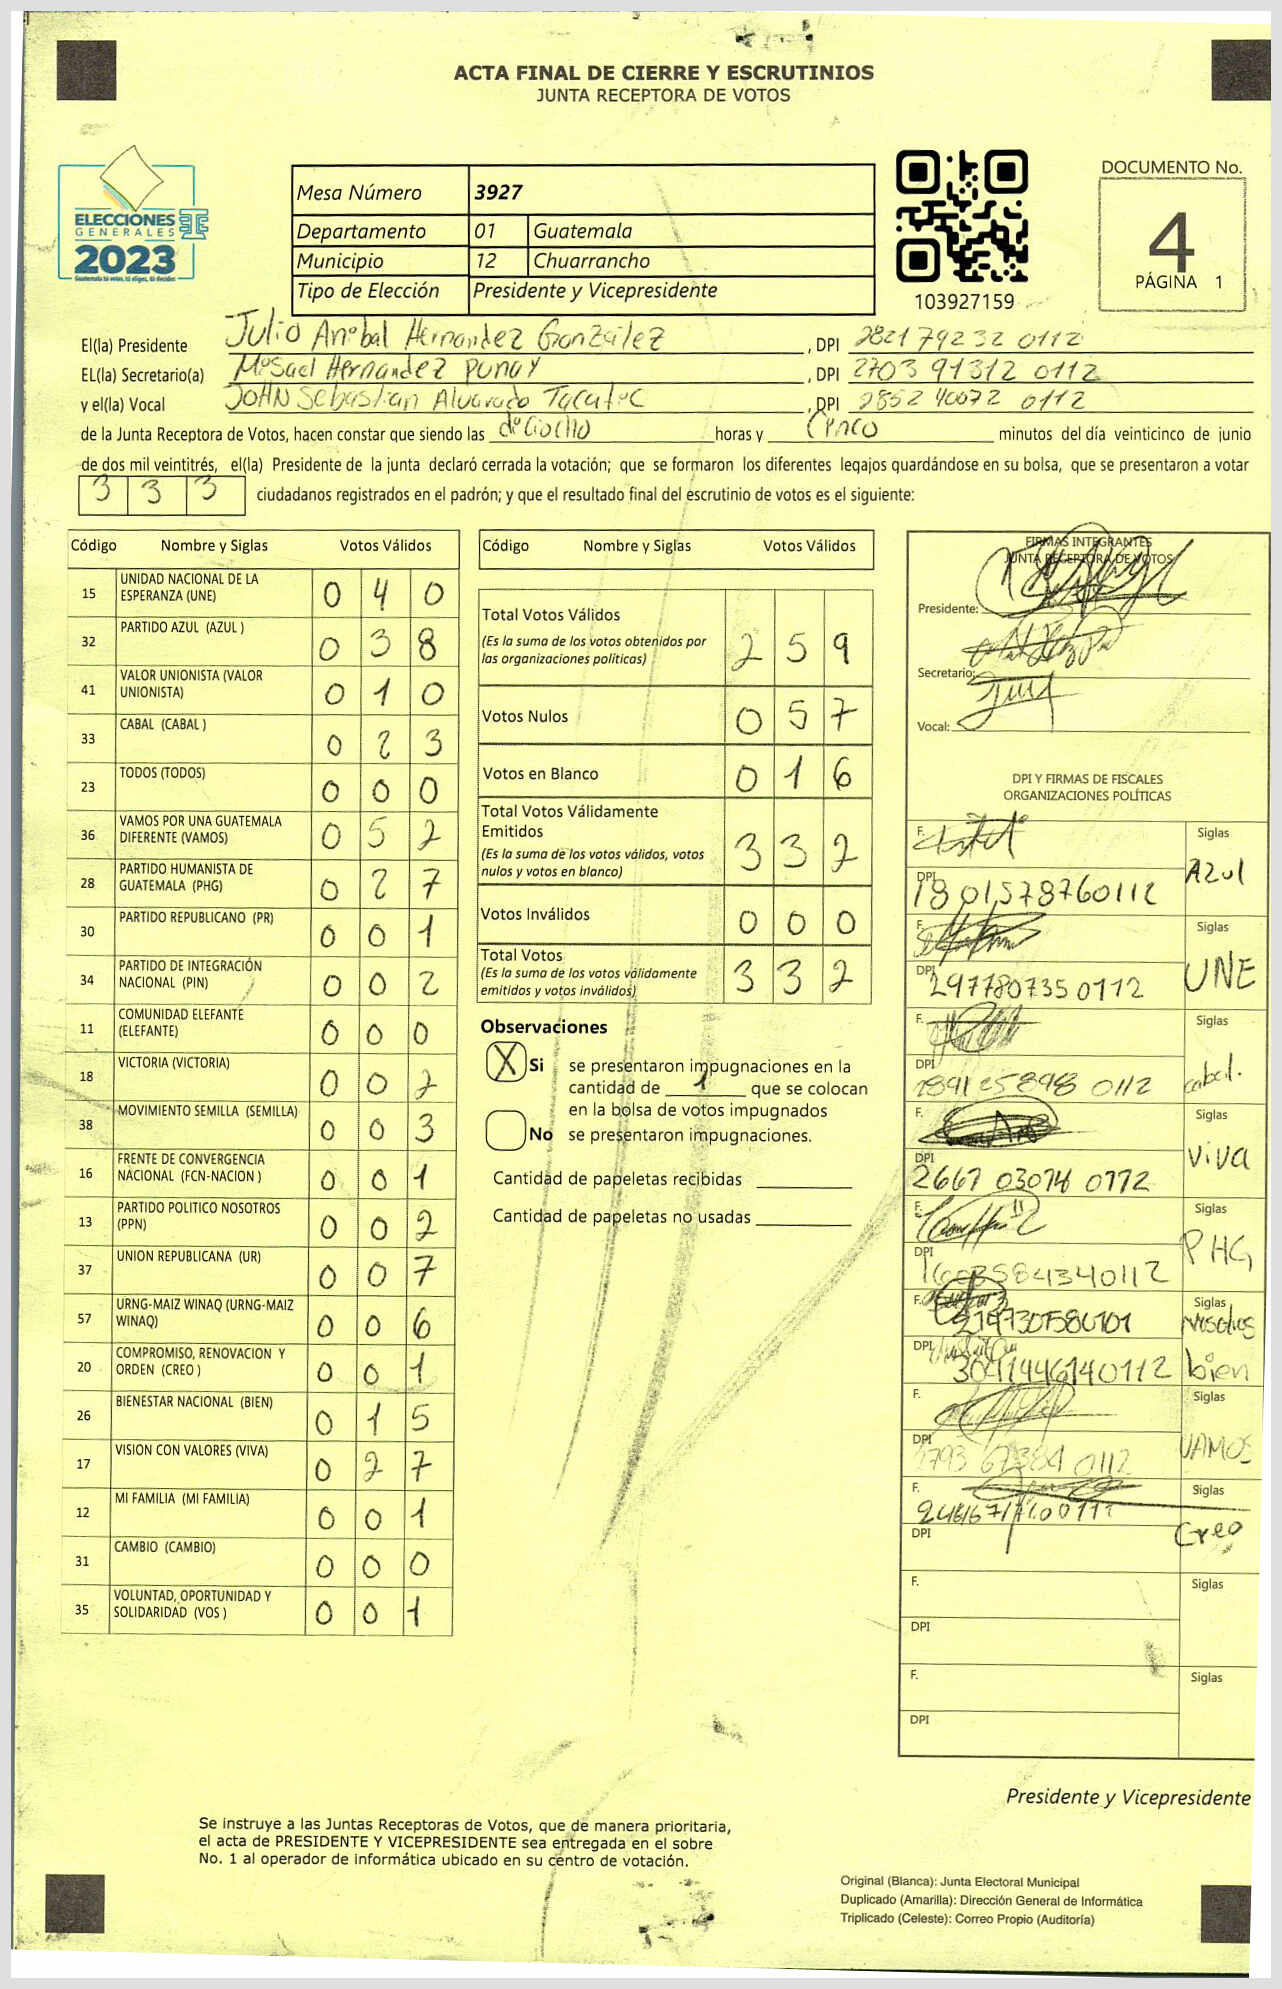 ACTA FINAL DE CIERRE Y ESCRUTINIOS
JUNTA RECEPTORA DE VOTOS
ELECCIONES
GENERALES
2023
Guatemala tú votas, tú eliges, tú decides
Mesa Número 3927
Departamento 01 Guatemala
Municipio 12 Chuarrancho
Tipo de Elección Presidente y Vicepresidente
103927159
DOCUMENTO No.
4
PÁGINA 1
El(la) Presidente Julio Anibal Hernandez González, DPI 2821 79232 0112
EL(la) Secretario(a) Misael Hernandez Punay, DPI 2703 91312 0112
y el(la) Vocal John Sebastian Alvarado, DPI 2852 40072 0112
de la Junta Receptora de Votos, hacen constar que siendo las dieciocho horas y Cinco minutos del día veinticinco de junio
de dos mil veintitrés, el(la) Presidente de la junta declaró cerrada la votación; que se formaron los diferentes legajos guardándose en su bolsa, que se presentaron a votar
3 3 3 ciudadanos registrados en el padrón; y que el resultado final del escrutinio de votos es el siguiente:
Código Nombre y Siglas Votos Válidos
15 UNIDAD NACIONAL DE LA ESPERANZA (UNE) 0 4 0
32 PARTIDO AZUL (AZUL ) 0 3 8
41 VALOR UNIONISTA (VALOR UNIONISTA) 0 1 0
33 CABAL (CABAL ) 0 2 3
23 TODOS (TODOS) 0 0 0
36 VAMOS POR UNA GUATEMALA DIFERENTE (VAMOS) 0 5 2
28 PARTIDO HUMANISTA DE GUATEMALA (PHG) 0 2 7
30 PARTIDO REPUBLICANO (PR) 0 0 1
34 PARTIDO DE INTEGRACIÓN NACIONAL (PIN) 0 0 2
11 COMUNIDAD ELEFANTE (ELEFANTE) 0 0 0
18 VICTORIA (VICTORIA) 0 0 2
38 MOVIMIENTO SEMILLA (SEMILLA) 0 0 3
16 FRENTE DE CONVERGENCIA NACIONAL (FCN-NACION ) 0 0 1
13 PARTIDO POLITICO NOSOTROS (PPN) 0 0 2
37 UNION REPUBLICANA (UR) 0 0 7
57 URNG-MAIZ WINAQ (URNG-MAIZ WINAQ) 0 0 6
20 COMPROMISO, RENOVACION Y ORDEN (CREO ) 0 0 1
26 BIENESTAR NACIONAL (BIEN) 0 1 5
17 VISION CON VALORES (VIVA) 0 2 7
12 MI FAMILIA (MI FAMILIA) 0 0 1
31 CAMBIO (CAMBIO) 0 0 0
35 VOLUNTAD, OPORTUNIDAD Y SOLIDARIDAD (VOS ) 0 0 1
Código Nombre y Siglas Votos Válidos
Total Votos Válidos
(Es la suma de los votos obtenidos por
las organizaciones políticas) 2 5 9
Votos Nulos 0 5 7
Votos en Blanco 0 1 6
Total Votos Válidamente
Emitidos
(Es la suma de los votos válidos, votos
nulos y votos en blanco) 3 3 2
Votos Inválidos 0 0 0
Total Votos
(Es la suma de los votos válidamente
emitidos y votos inválidos) 3 3 2
Observaciones
X Si se presentaron impugnaciones en la
cantidad de 1 que se colocan
en la bolsa de votos impugnados
No se presentaron impugnaciones.
Cantidad de papeletas recibidas
Cantidad de papeletas no usadas
FIRMAS INTEGRANTES
JUNTA RECEPTORA DE VOTOS
Presidente:
Secretario:
Vocal:
DPI Y FIRMAS DE FISCALES
ORGANIZACIONES POLÍTICAS
F. Siglas
DPI 1801578760112 Azul
F. Siglas
DPI 2977807350112 UNE
F. Siglas
DPI 1891 25898 0112 cabal.
F. Siglas
DPI 2667 03074 0112 viva
F. Siglas
DPI PHG
F. Siglas
Nosotros
DPI 3041446140112 bien
F. Siglas
DPI VAMOS
F. Siglas
DPI Creo
F. Siglas
DPI
F. Siglas
DPI
Presidente y Vicepresidente
Se instruye a las Juntas Receptoras de Votos, que de manera prioritaria,
el acta de PRESIDENTE Y VICEPRESIDENTE sea entregada en el sobre
No. 1 al operador de informática ubicado en su centro de votación.
Original (Blanca): Junta Electoral Municipal
Duplicado (Amarilla): Dirección General de Informática
Triplicado (Celeste): Correo Propio (Auditoría)